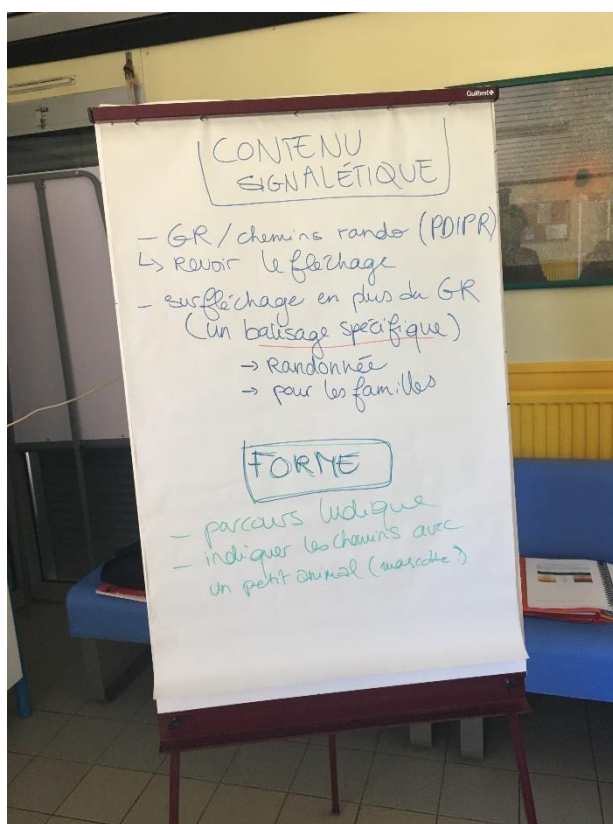 Guilbert
CONTENU
SIGNALÉTIQUE
- GR / chemins rando (PDIPR)
↳ Revoir le fléchage
- surfléchage en plus du GR
(un balisage spécifique)
→ Randonnée
→ pour les familles
FORME
- parcours ludique
- indiquer les chemins avec
un petit animal (mascotte?)